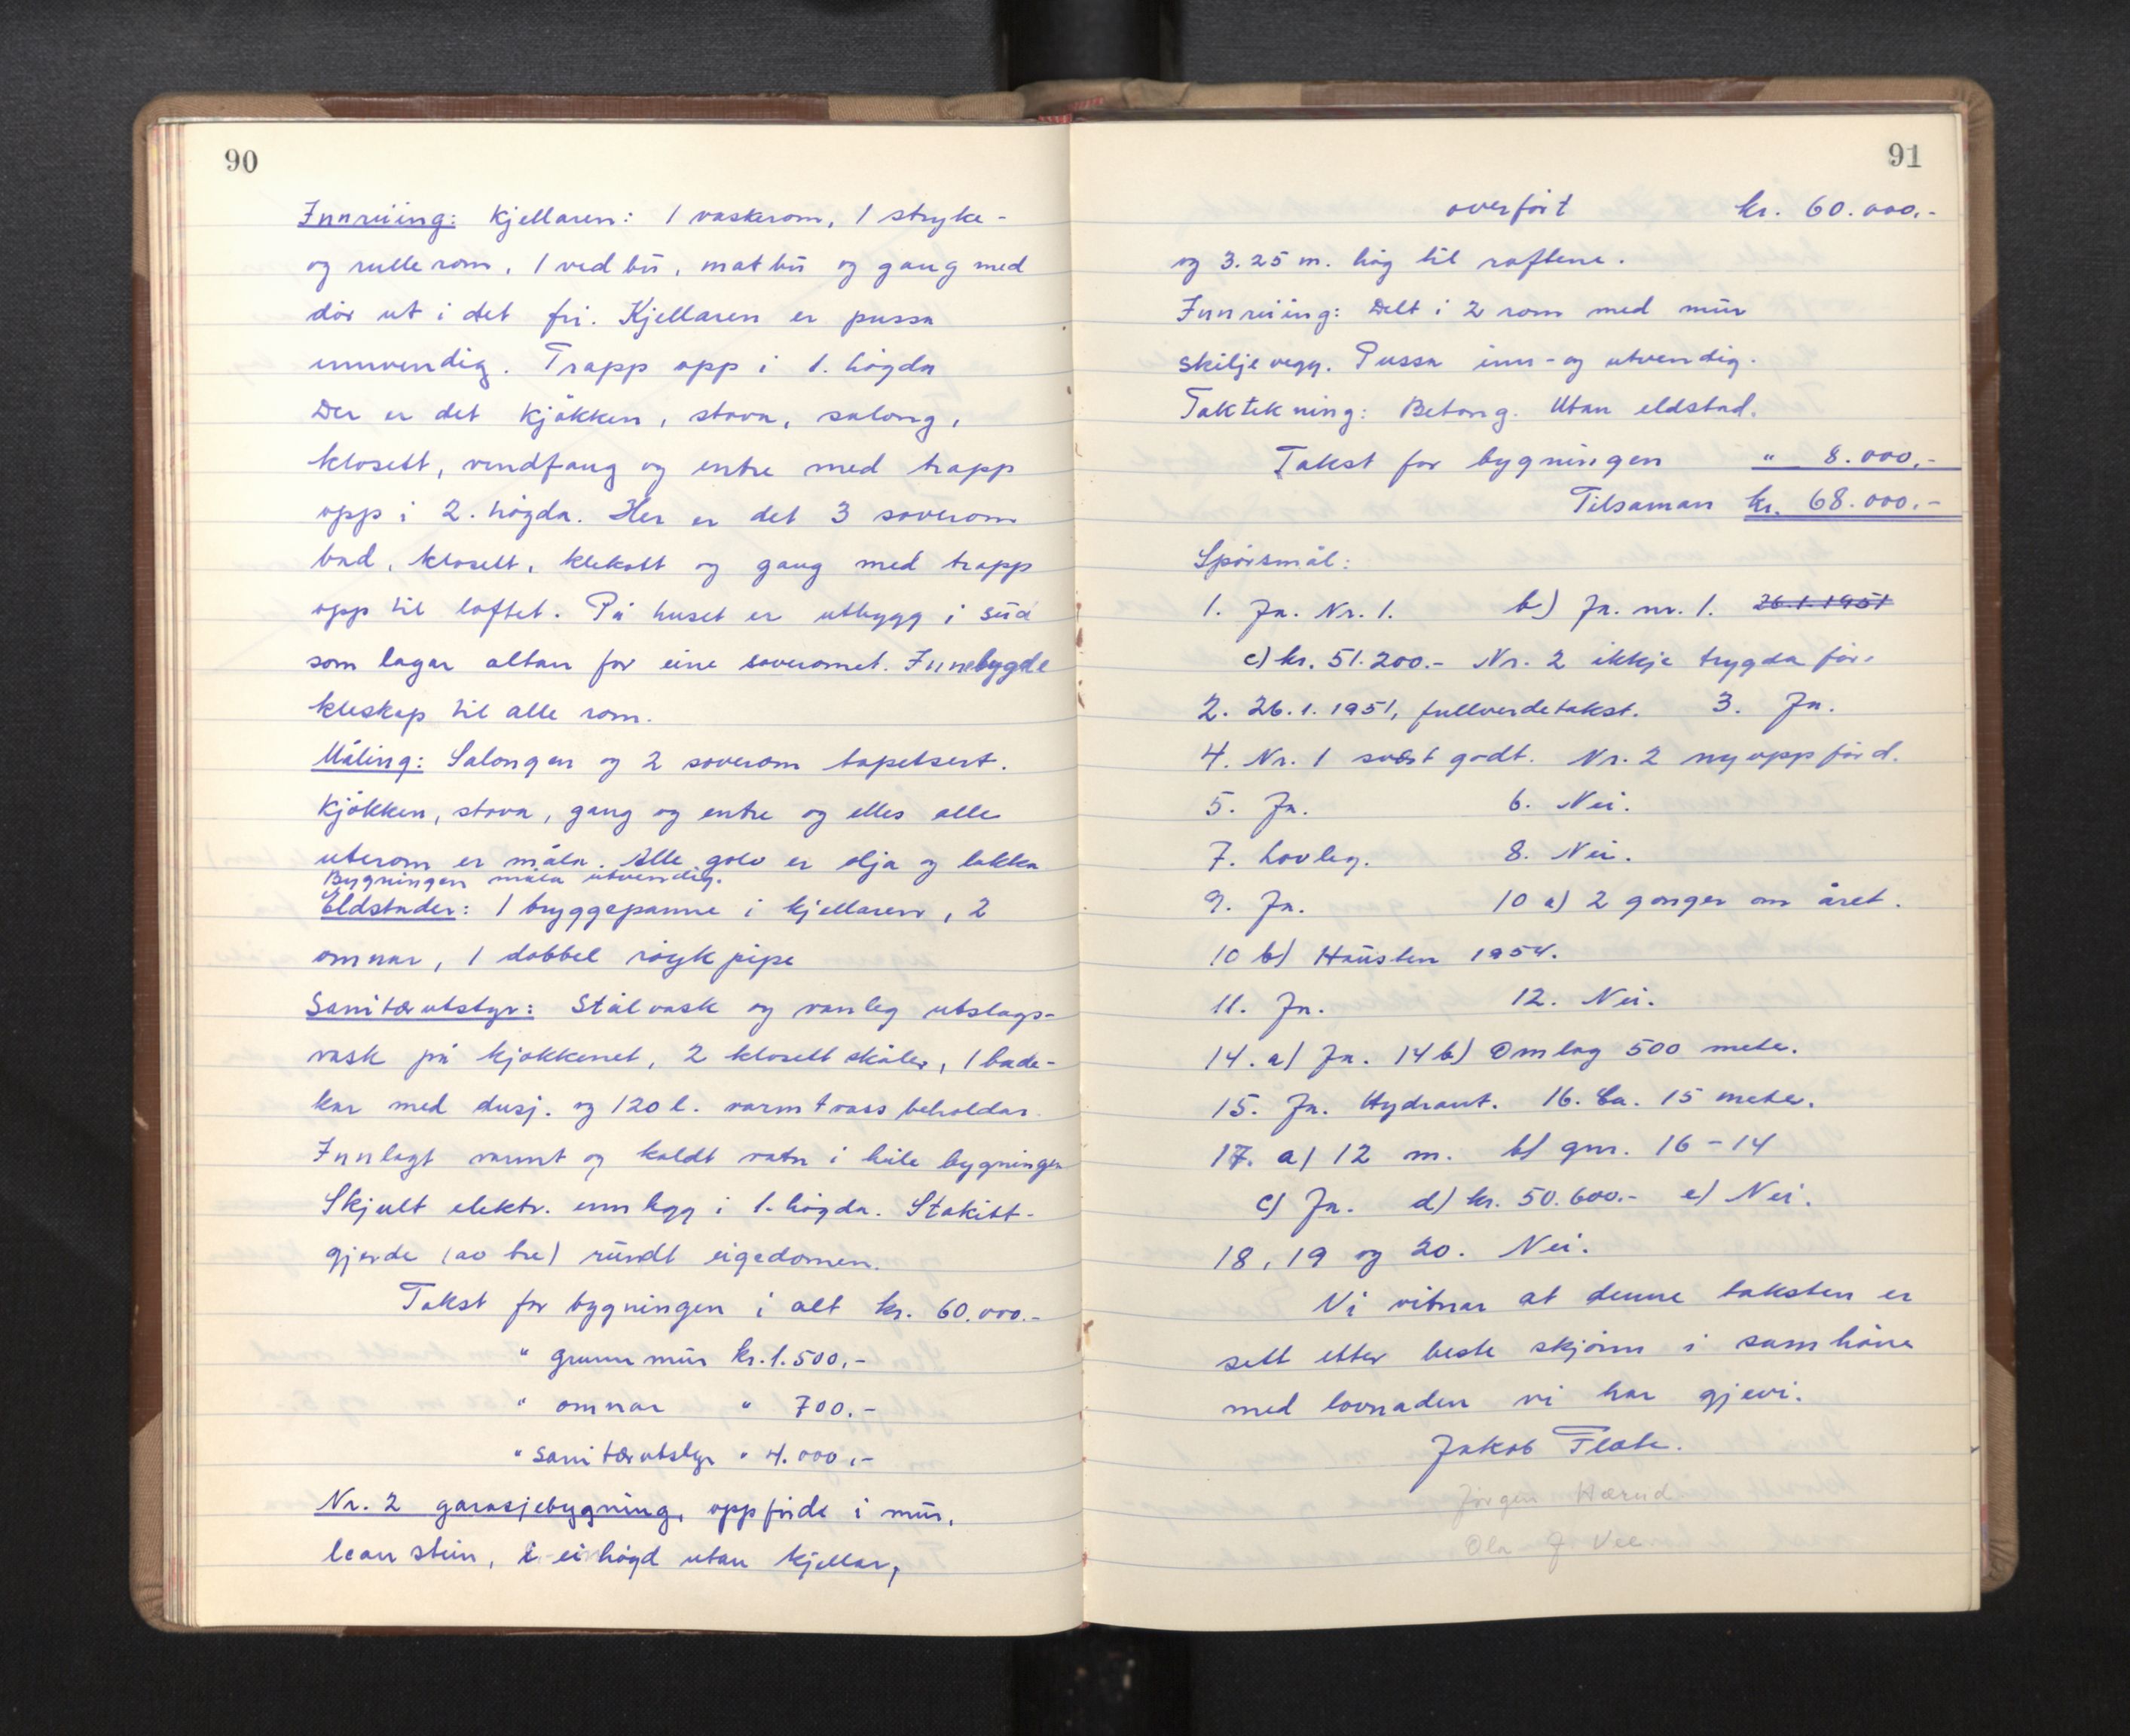 90
Innreiing: Kjellaren: 1 vaskerom, 1 stryke-
og rullerom, 1 vedbu, matbu og gang med
dör ut i det fri. Kjellaren er pussa
innvendig. Trapp opp i 1. högda
Der er det kjökken, stova, salong,
klosett, vindfang og entre med trapp
opp i 2. högda. Her er det 3 soverom
bad, klosett, klekott og gang med trapp
opp til loftet. På huset er utbygg i süd
som lagar altan for eine soveromet. Innebygde
kleskap til alle rom.
Måling: Salongen og 2 soverom tapetsert.
Kjökken, stova, gang og entre og elles alle
uterom er måla. Alle golv er olja og lakka
Bygningen måla utvendig.
Eldstader: 1 bryggepanne i kjellaren, 2
omnar, 1 dobbel röykpipe
Sanitærutstyr: Stålvask og vanleg utslags-
vask på kjøkkenet, 2 klosettskåler, 1 bade-
kar med dusj. og 120 l. varmtvassbeholdar.
Innlagt varmt og kaldt vatn i heile bygningen
Skjult elektr. innlegg i 1. högda. Stakitt-
gjerde (av tre) rundt eigedomen.
Takst for bygningen i alt kr. 60.000.-
" grunnmur kr. 1.500,-
" omnar " 700.-
" sanitærutstyr " 4.000,-
Nr. 2 garasjebygning, oppförde i mur,
lean stein, i ei högd utan kjellar,
91
overfört kr. 60.000,-
og 3.25 m. hög til raftene.
Innreiing: Delt i 2 rom med mur
skiljevegg. Pussa inn- og utvendig.
Taktekning: Betong. Utan eldstad.
Takst for bygningen " 8.000,-
Tilsaman kr. 68.000.-
Spörsmål:
1. Ja. Nr. 1. b) Ja. nr. 1. 26.1.1951
c) kr. 51.200.- Nr. 2 ikkje trygda för.
2. 26.1.1951, fullverdetakst. 3. Ja.
4. Nr. 1 svært godt. Nr. 2 nyoppförd.
5. Ja. 6. Nei.
7. Lovleg. 8. Nei.
9. Ja. 10 a) 2 gonger om året.
10 b) Hausten 1954.
11. Ja. 12. Nei.
14. a) Ja. 14 b) Omlag 500 meter.
15. Ja. Hydrant. 16. Ca. 15 meter.
17. a) 12 m. b) gnr. 16 - 14
c) Ja. d) kr. 50.600.- e) Nei.
18, 19 og 20. Nei.
Vi vitnar at denne taksten er
sett etter beste skjönn i samhöve
med lovnaden vi har gjevi.
Jakob Flate.
Jörgen Hærud
Ola J Vee